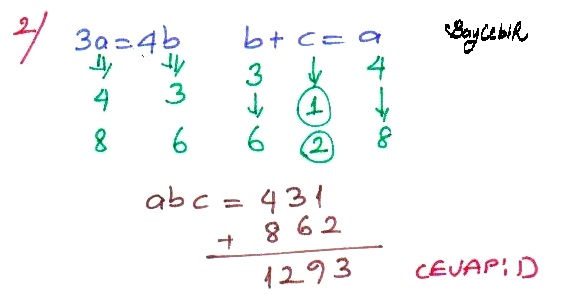 2/ 3a=4b b+c=a BayCebiR
⇓ ⇓ 3 ↓ 4
4 3 ↓ 1 ↓
8 6 6 2 8
abc = 431
+ 862
1293 CEVAP: D